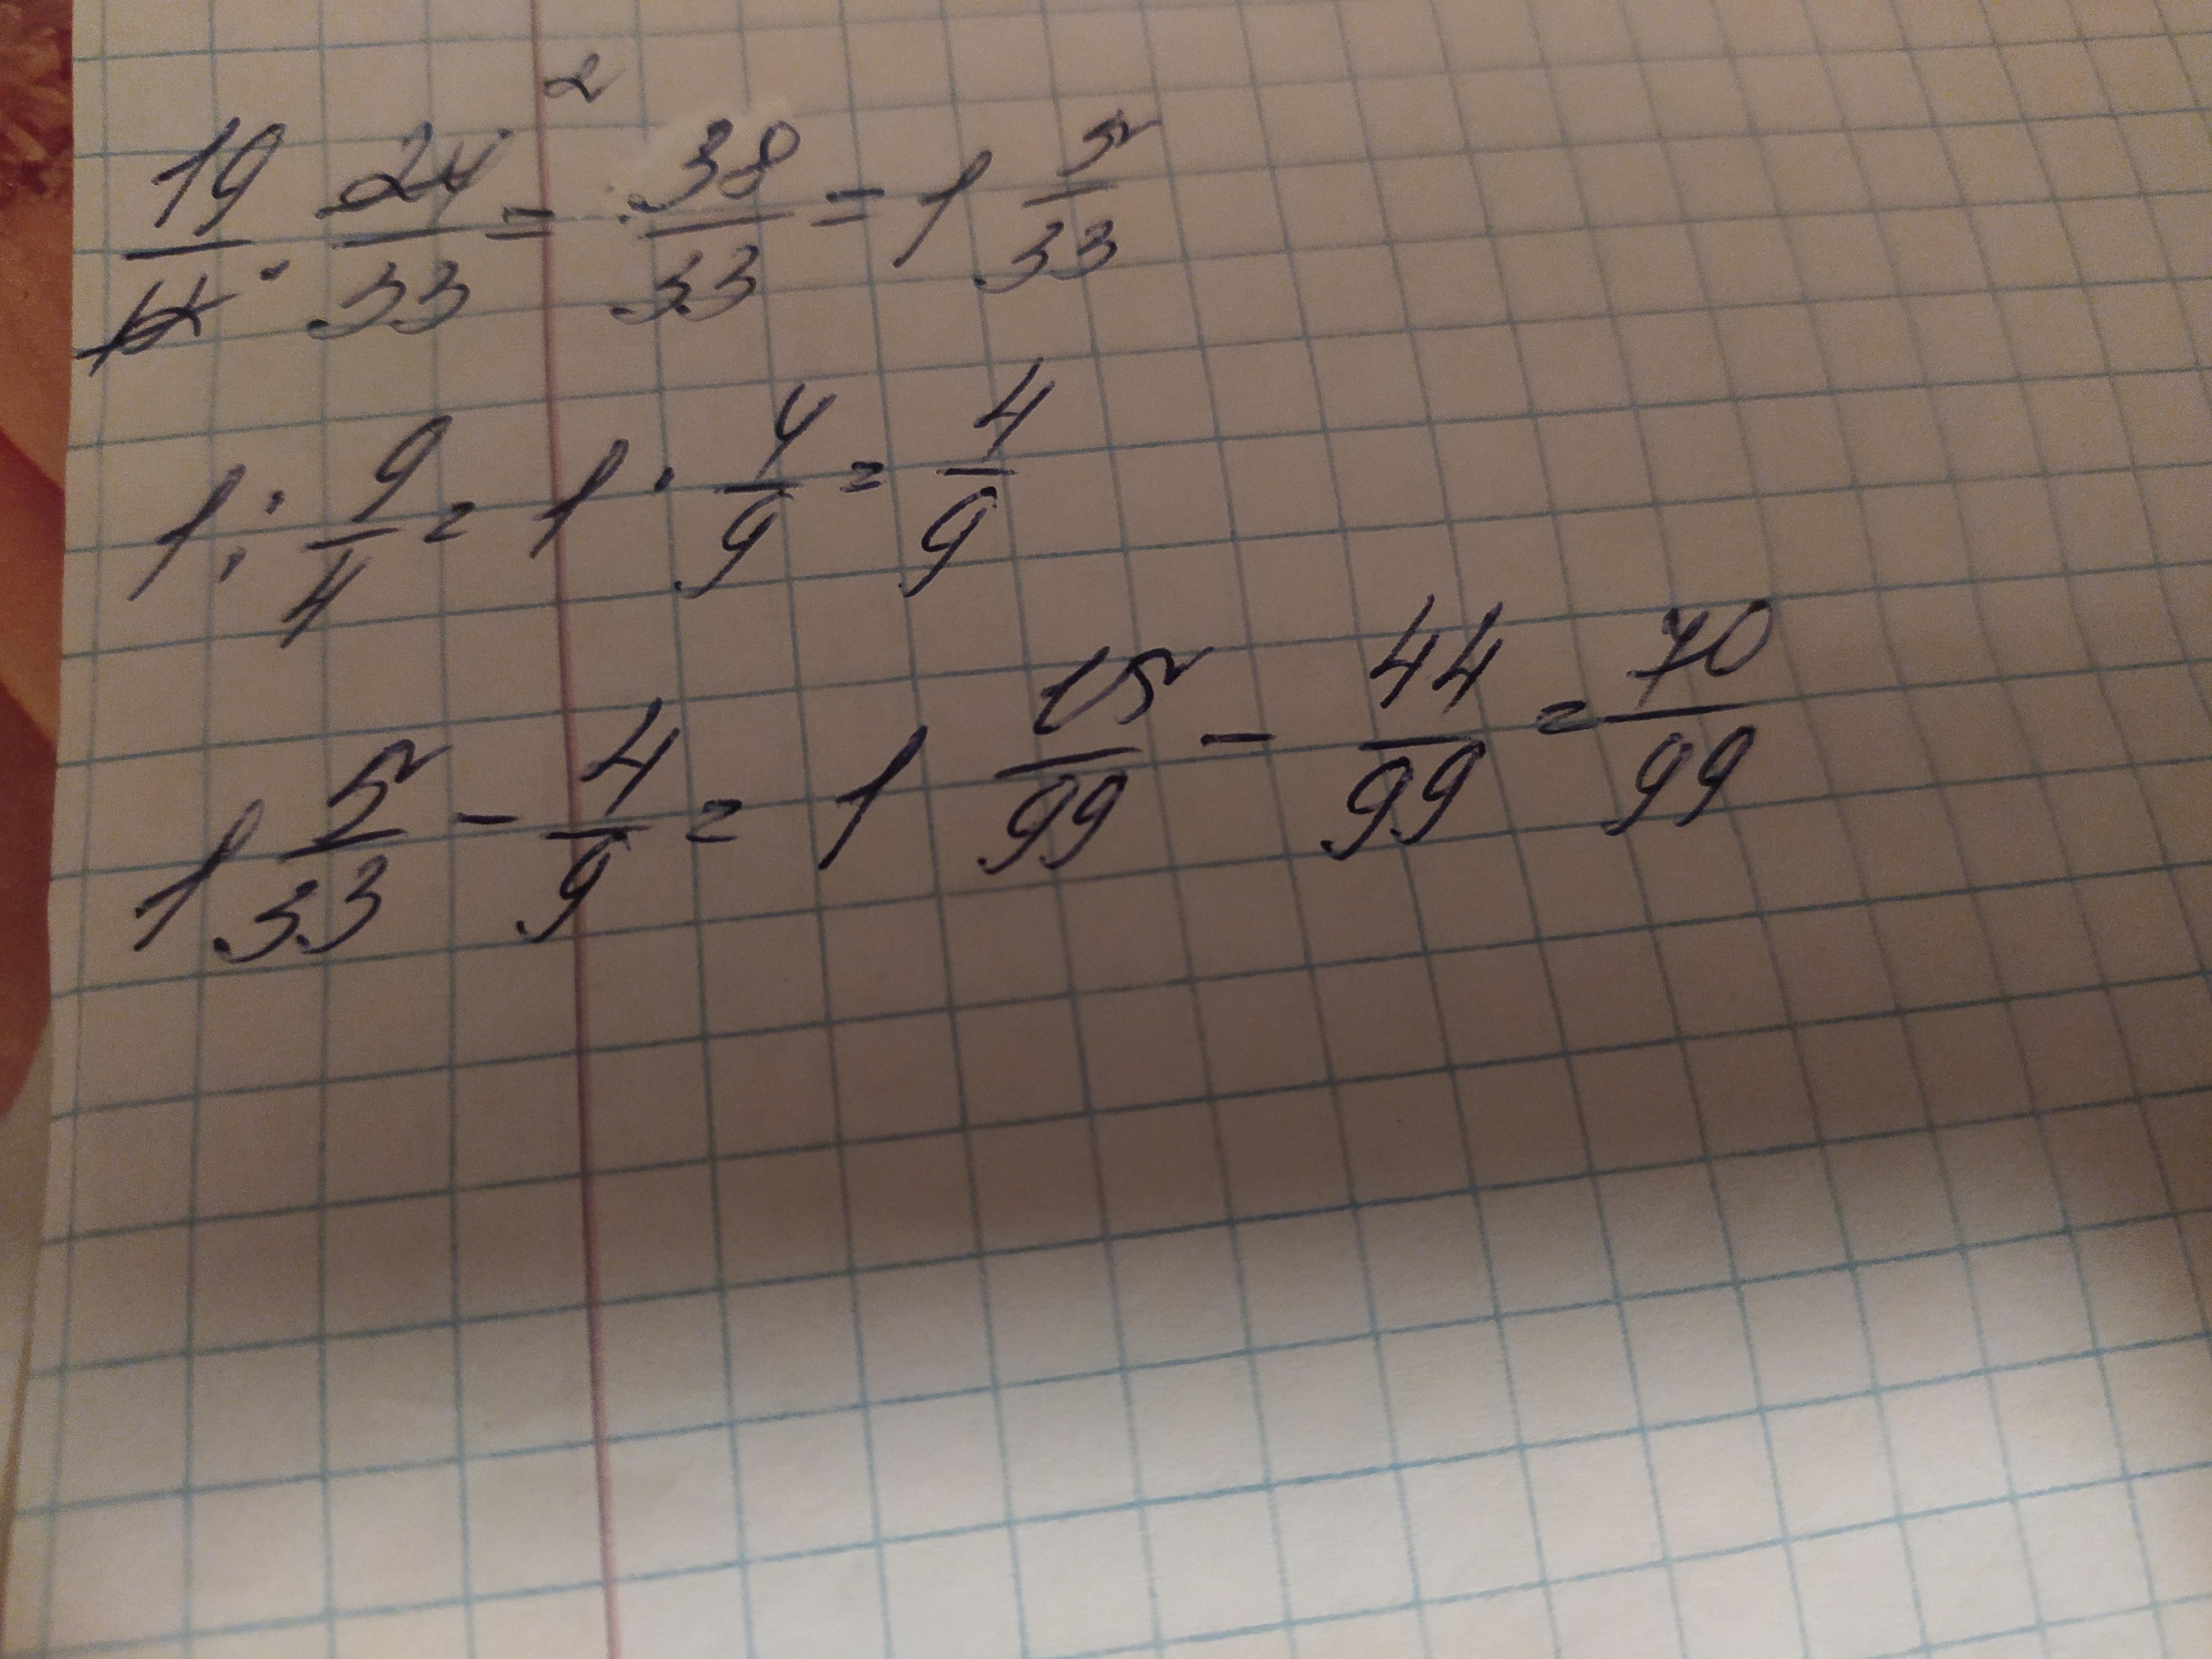 2
19/12 · 24/33 = 38/33 = 1 5/33
1 : 9/4 = 1 · 4/9 = 4/9
1 5/33 - 4/9 = 1 15/99 - 44/99 = 70/99